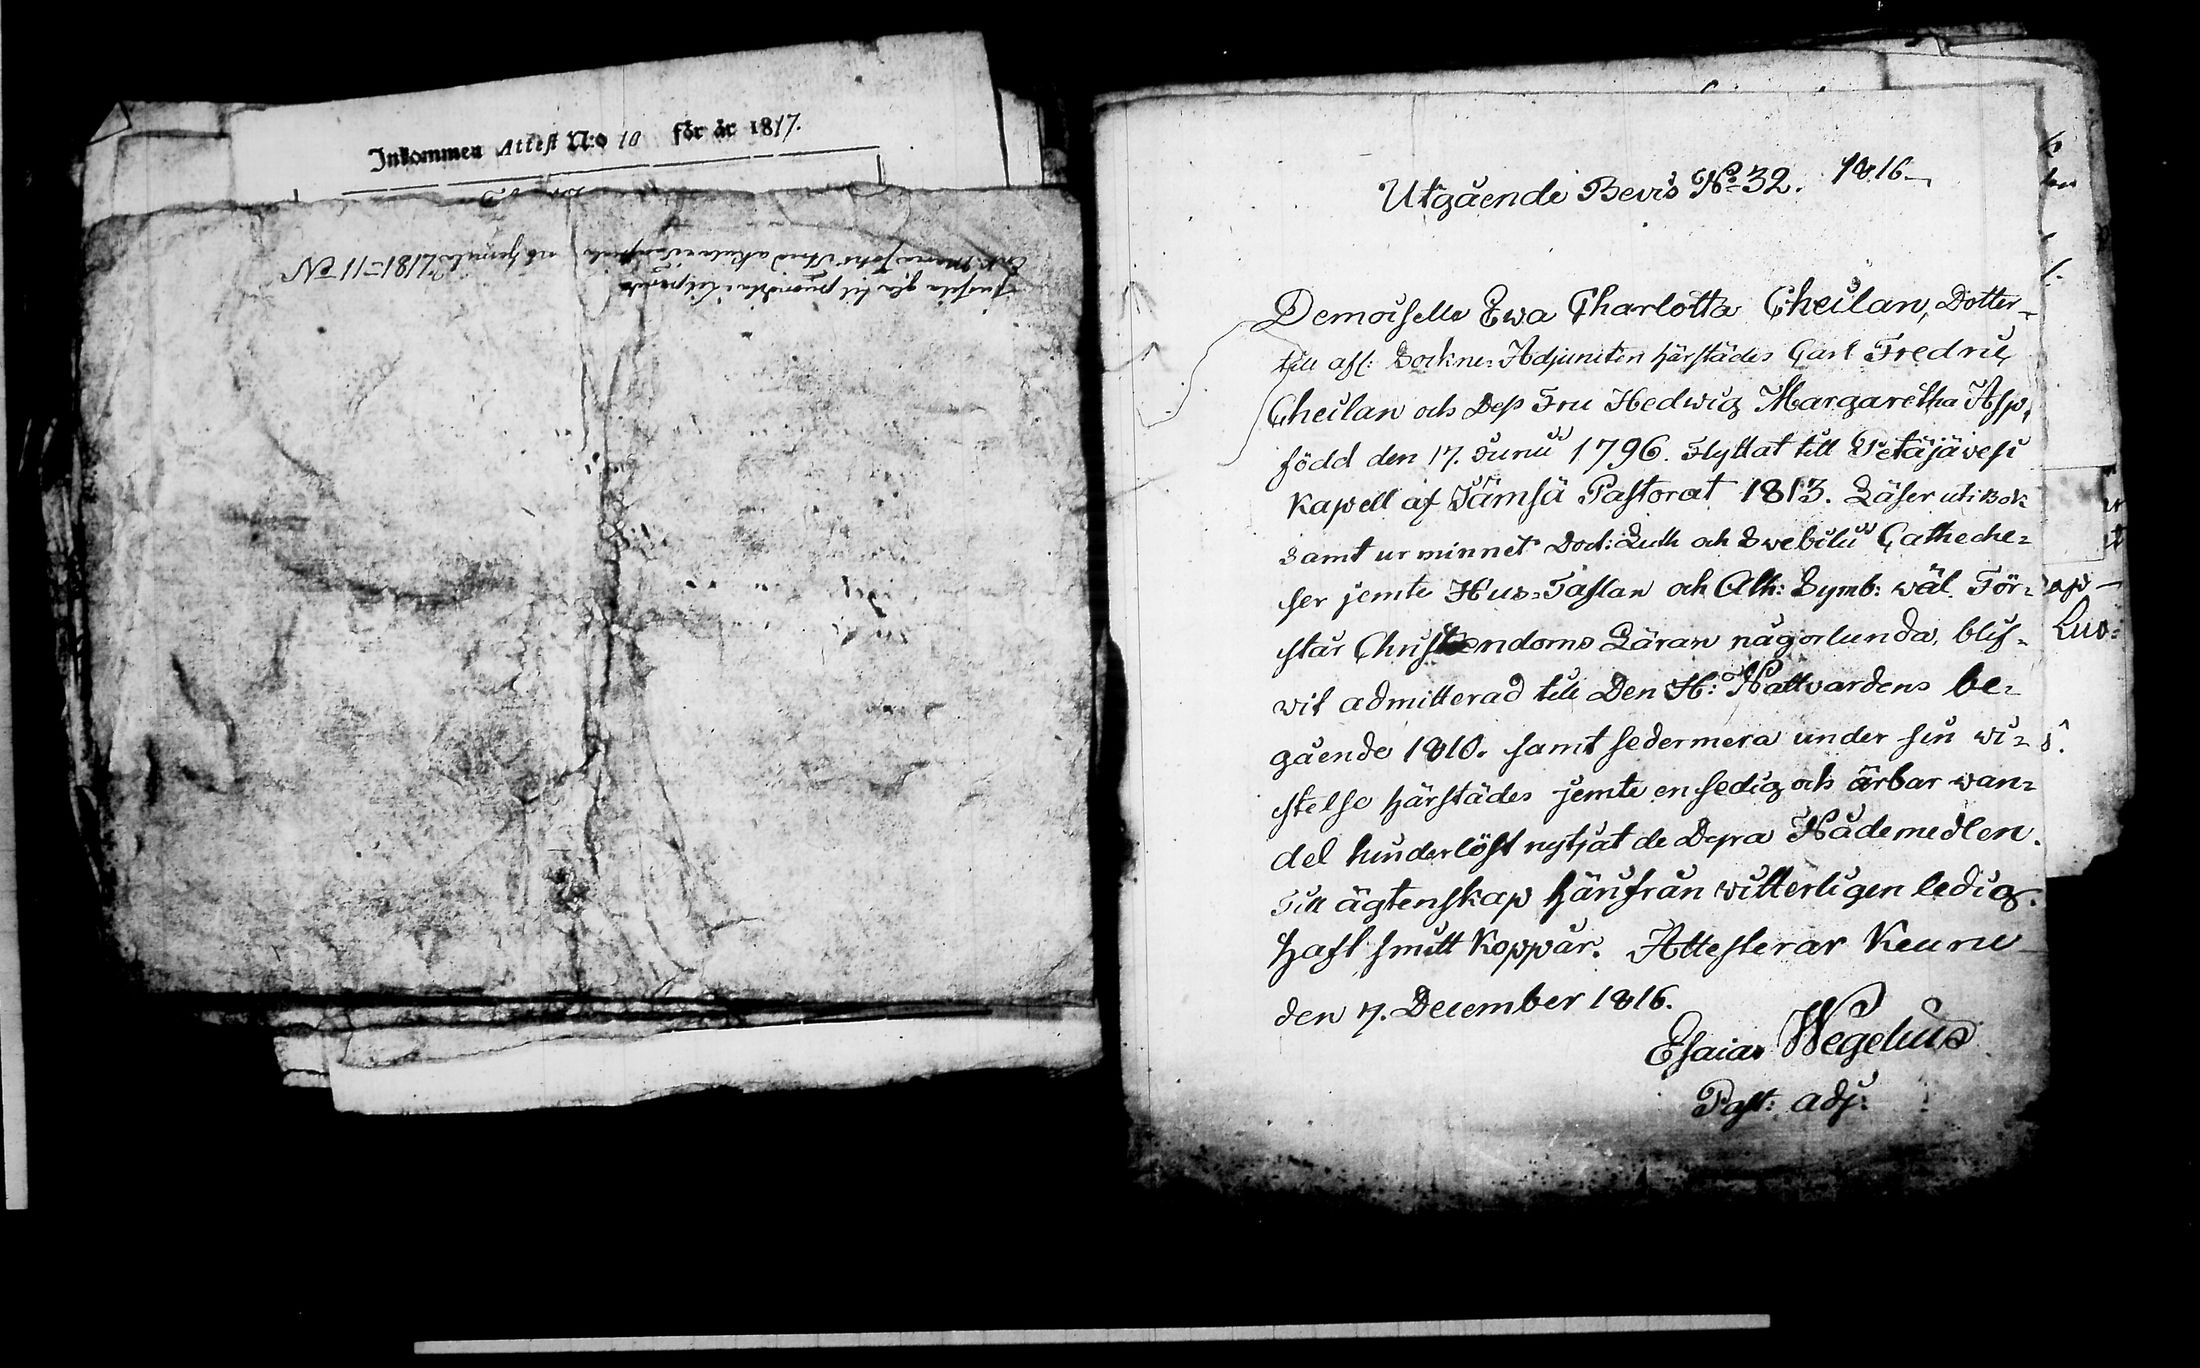 Inkommen Attest N:o 10 för år 1817.
No 11 - 1817
Utgående Bevis No 32. 1816
Demoiselle Ewa Charlotta Cheilan, Dotter
till afl: Sockne-Adjuncten härstädes Carl Fredric
Cheilan och Dess Fru Hedwig Margaretha Asp,
född den 17. Junii 1796. Flyttat till Petäjävesi
Kapell af Jämsä Pastorat 1813. Läser uti Bok
samt ur minnet Doct: Luth och Swebilii Catheche-
ser jemte Hus-Taflan och Ath: Symb: wäl. För-
står Christendoms Läran någorlunda, blif-
wit admitterad till Den H: Nattvardens be-
gående 1810. samt sedermera under sin wi-
stelse härstädes jemte en sedig och ärbar wan-
del hinderlöst nytjat de Dyra Nådemedlen.
Till ägtenskap härifrån witterligen ledig.
Haft smitt Koppår. Attesterar Keuru
den 7. December 1816.
Esaias Wegelius
Past: adj: